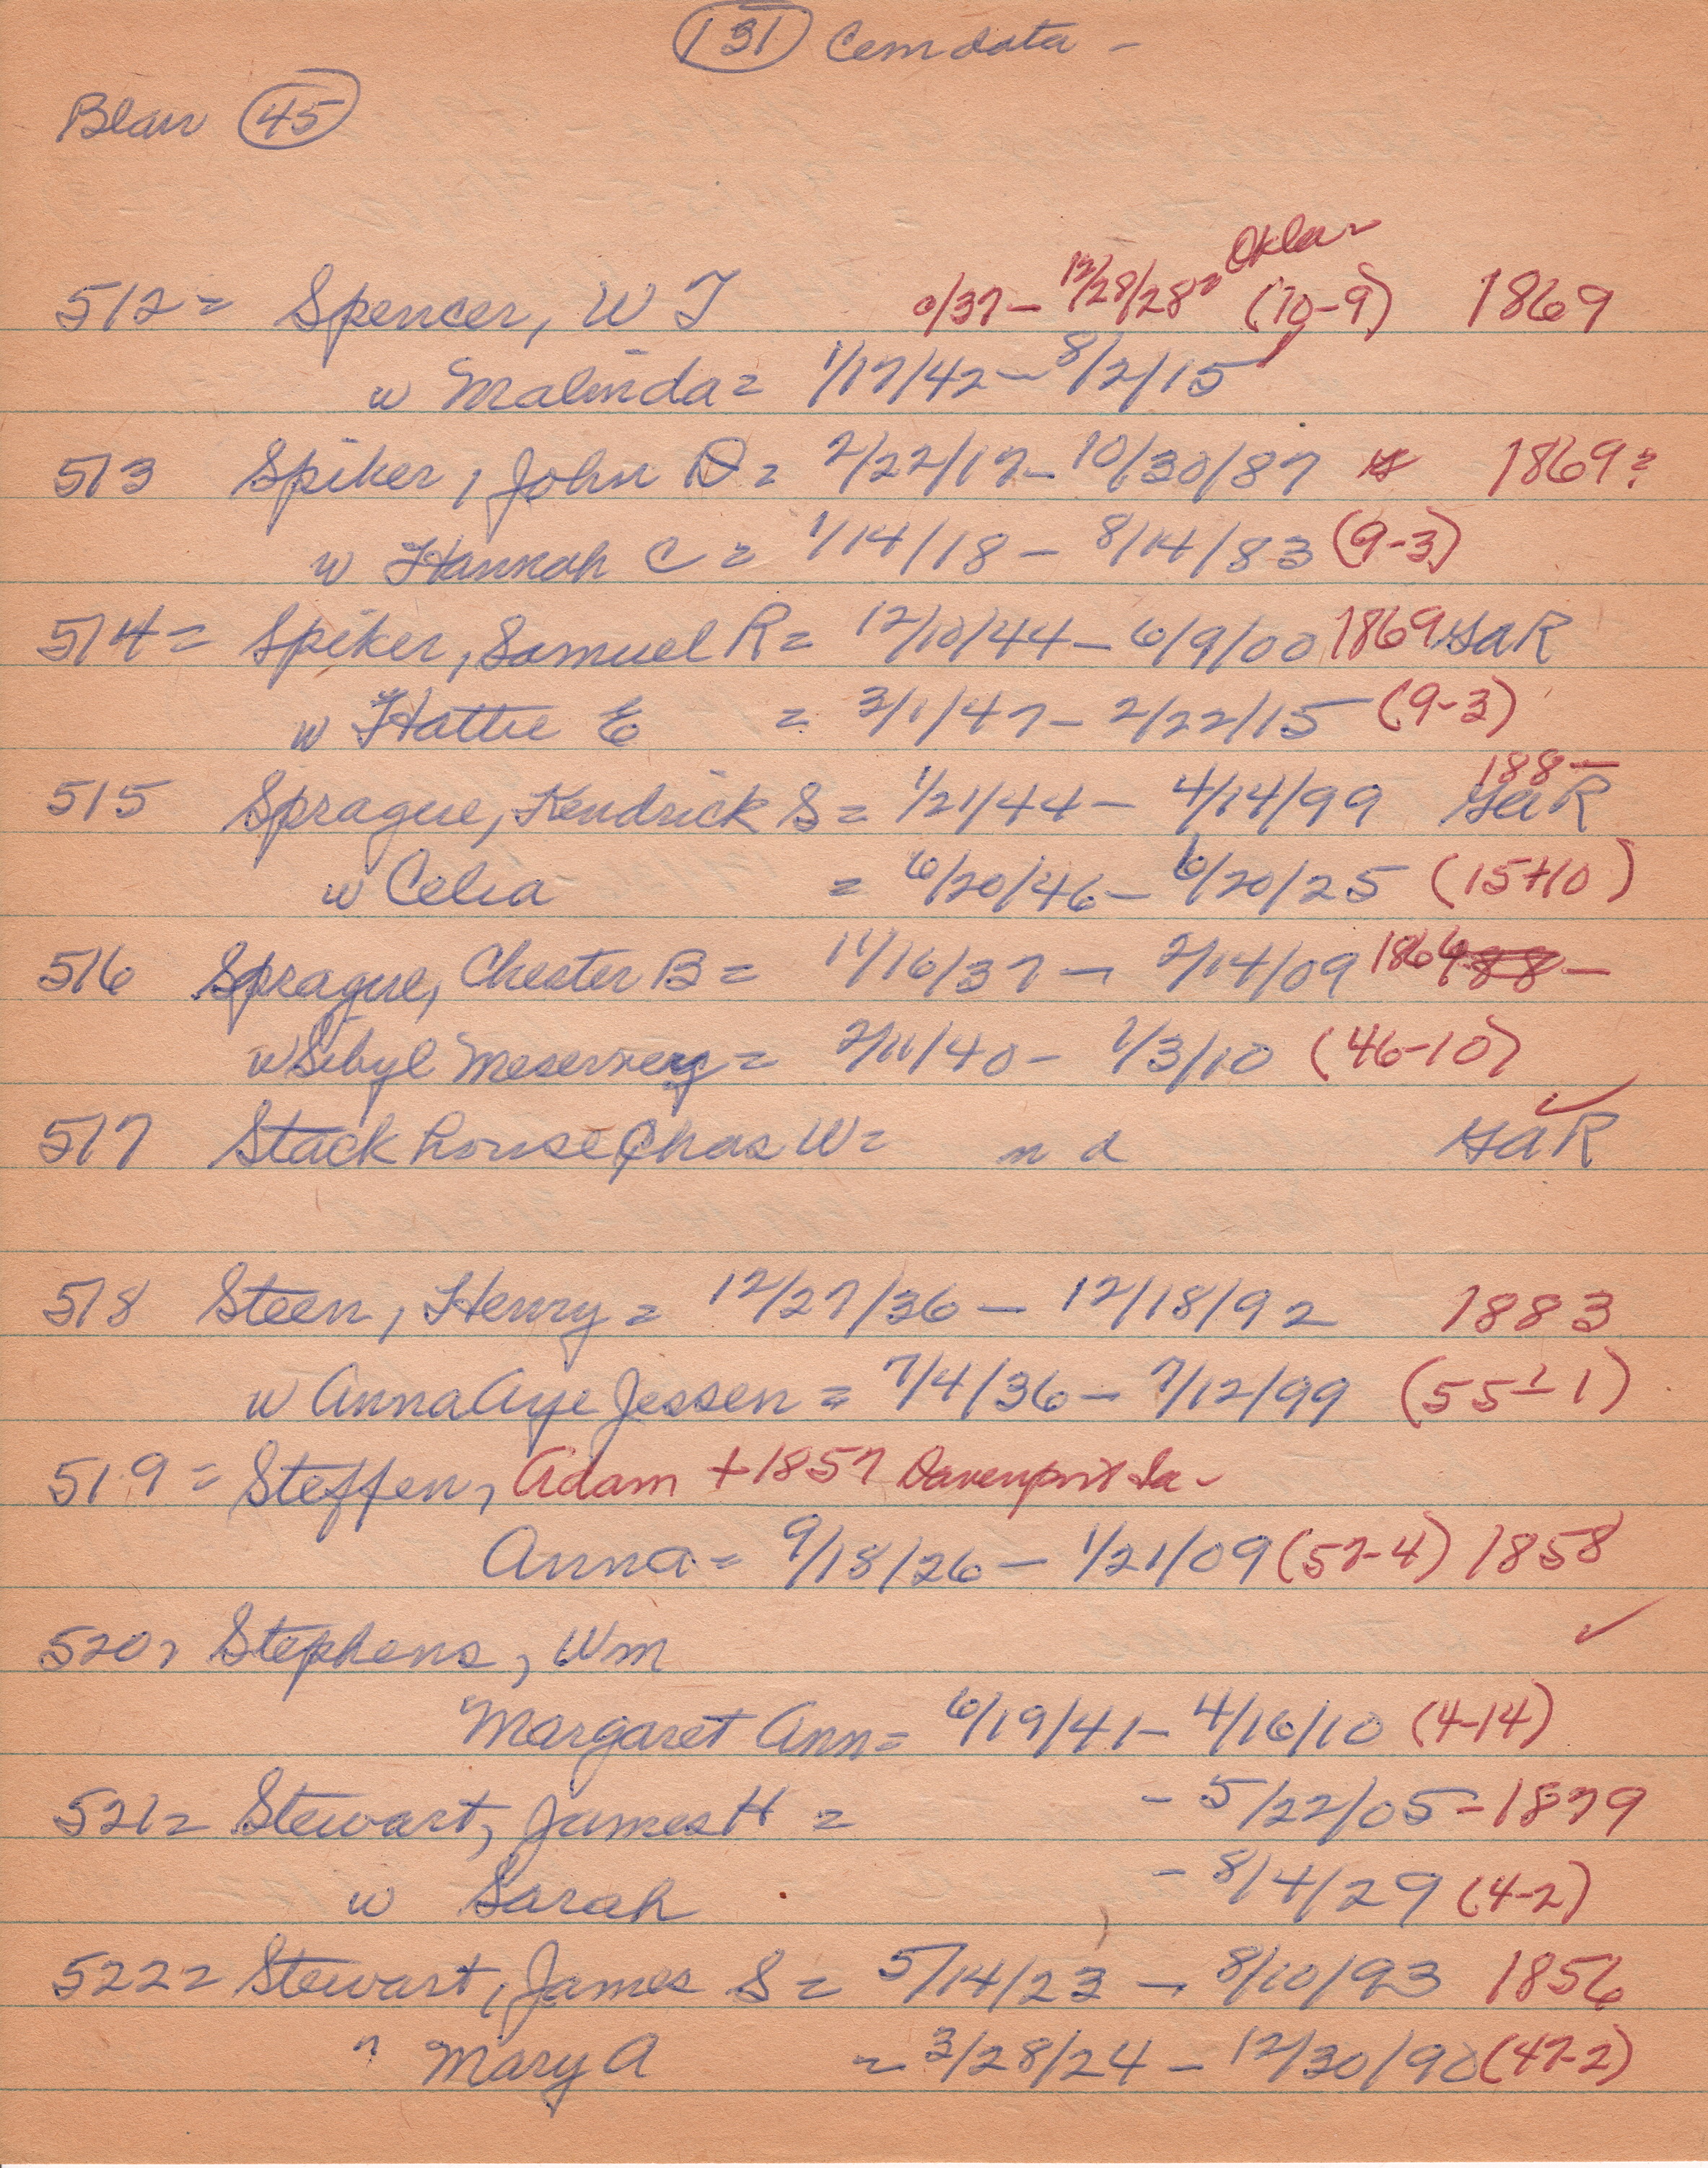 (131) Cem data -
Blair (45)
Okla -
512 = Spencer, W T 0/37 - 12/28/28 = (10-9) 1869
w Malinda = 1/17/42 - 8/2/15
513 Spiker, John D = 2/22/17 - 10/30/87 1869?
w Hannah C = 1/14/18 - 8/14/83 (9-3)
514 = Spiker, Samuel R = 12/10/44 - 6/9/00 1869 GaR
w Hattie E = 3/1/47 - 2/22/15 (9-3)
188-
515 Sprague, Kendrick S = 1/21/44 - 4/14/99 GaR
w Celia = 6/20/46 - 6/20/25 (15+10)
516 Sprague, Chester B = 11/16/37 - 2/14/09 1864 88 -
w Sibyl Meservey = 2/11/40 - 1/3/10 (46-10)
517 Stackhouse Chas W = n d GaR
518 Steen, Henry = 12/27/36 - 12/18/92 1883
w Anna Aye Jessen = 7/4/36 - 7/12/99 (55-1)
519 = Steffen, Adam + 1857 Davenport Ia -
Anna = 9/18/26 - 1/21/09 (57-4) 1858
520, Stephens, Wm
Margaret Ann = 6/19/41 - 4/16/10 (4-14)
521 = Stewart, James H = - 5/22/05 - 1879
w Sarah - 8/4/29 (4-2)
522 = Stewart, James S = 5/14/23 - 8/10/93 1856
" Mary A = 3/28/24 - 12/30/90 (47-2)